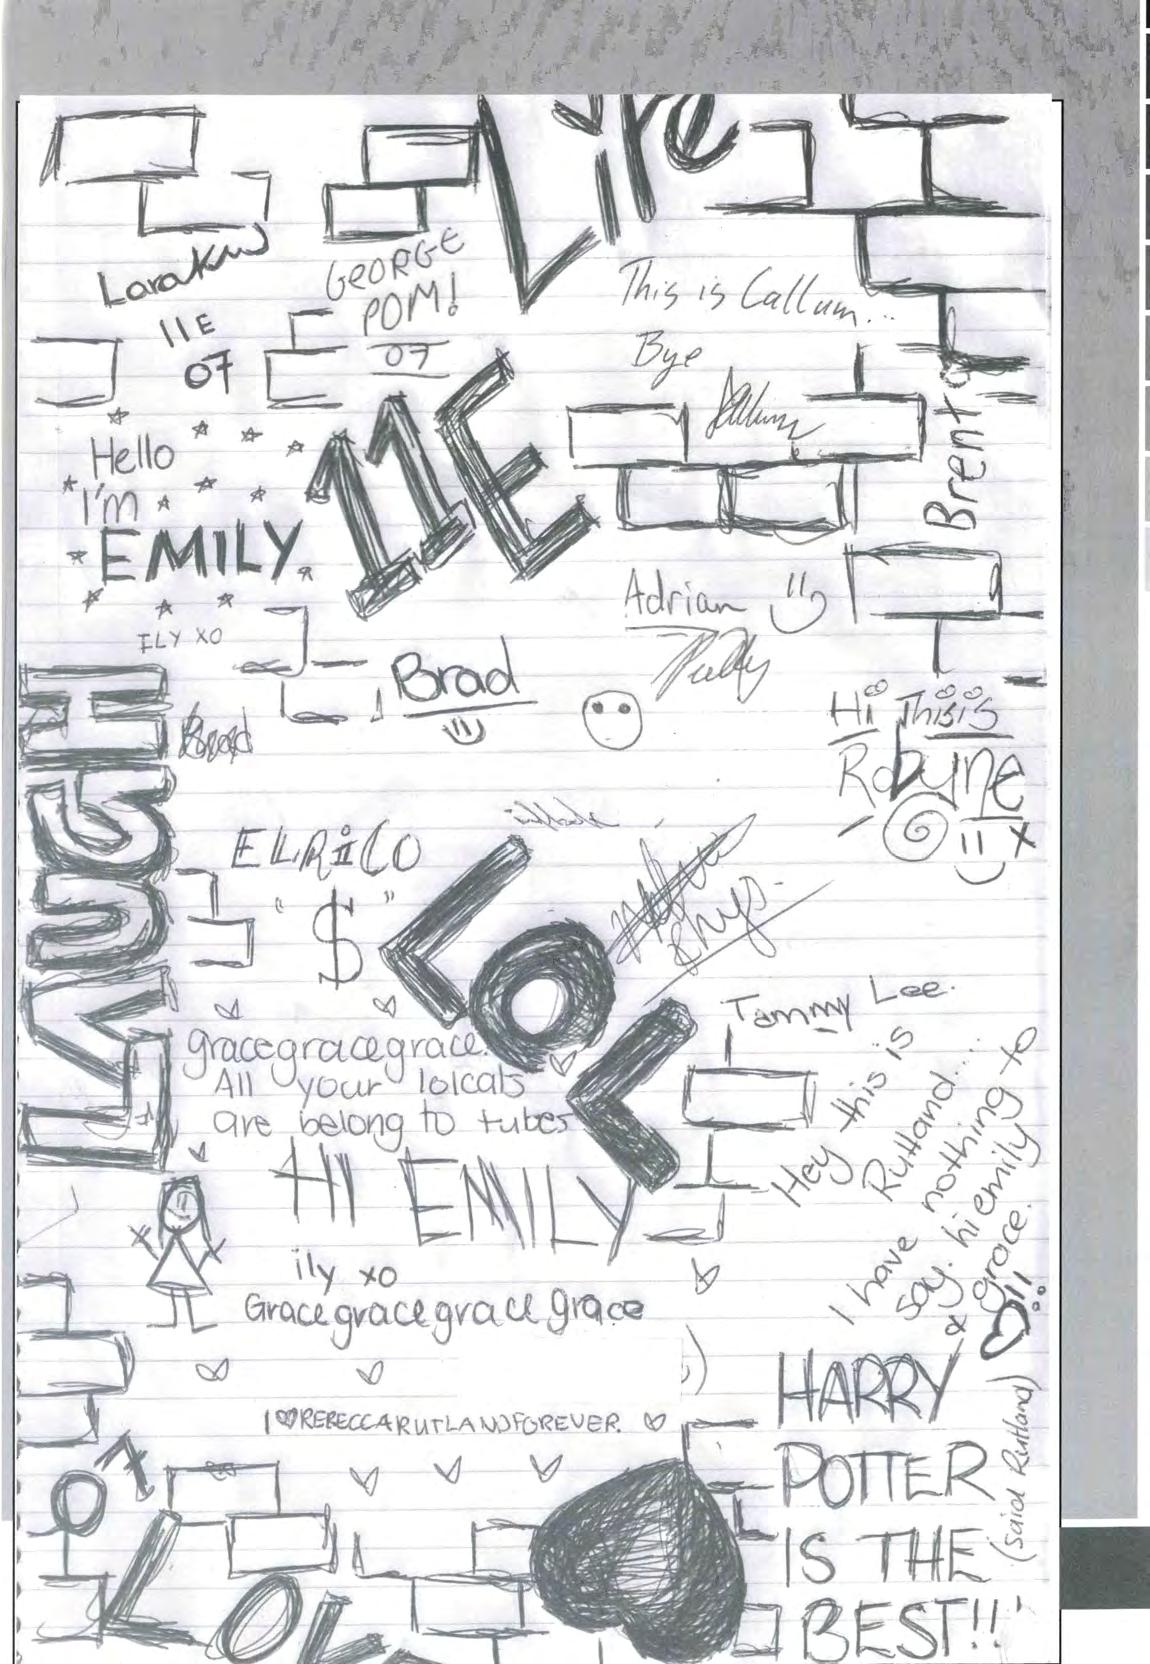 Life
LaraKW
11E
07
GEORGE
POM!
07
This is Callum...
Bye
Brent
Hello
I'm
EMILY
ILY XO
11E
Adrian
Brad
Brad
Hi This is
Robyne
x
LAUGH
ELRiCO
"$"
LOL
Rhys.
Tammy Lee.
gracegracegrace.
All your lolcats
are belong to tubes
HI EMILY
ily xo
Grace grace grace grace
Hey this is
Rutland....
I have nothing to
say. hi emily to
& grace.
I REBECCARUTLANDFOREVER.
HARRY
POTTER
IS THE
BEST!!
(said Rutland)
07
LOVE